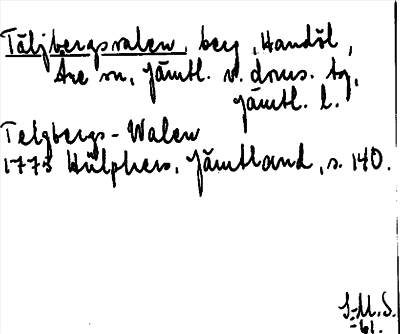 Täljbergsvalen, berg, Handöl,
Åre sn, Jämtl. v. doms. tg,
Jämtl. l.
Telgbergs-Walen
1775 Hülphers, Jämtland, s. 140.
S-M.S.
-61.